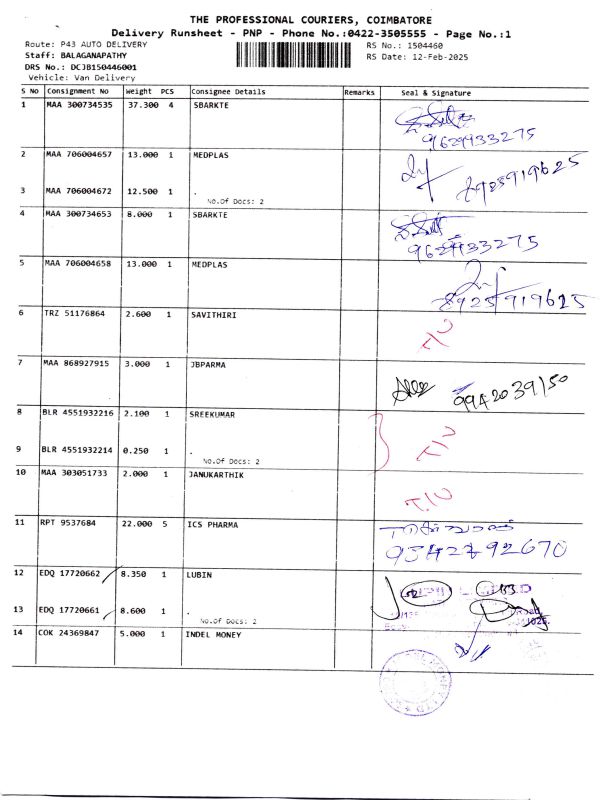 THE PROFESSIONAL COURIERS, COIMBATORE
Delivery Runsheet - PNP - Phone No.:0422-3505555 - Page No.:1
Route: P43 AUTO DELIVERY RS No.: 1504460
Staff: BALAGANAPATHY RS Date: 12-Feb-2025
DRS No.: DCJB150446001
Vehicle: Van Delivery
S No Consignment No Weight PCS Consignee Details Remarks Seal & Signature
1 MAA 300734535 37.300 4 SBARKTE
9629933275
2 MAA 706004657 13.000 1 MEDPLAS
8925919625
3 MAA 706004672 12.500 1 .
No.Of Docs: 2
4 MAA 300734653 8.000 1 SBARKTE
9629933275
5 MAA 706004658 13.000 1 MEDPLAS
8925919625
6 TRZ 51176864 2.600 1 SAVITHIRI
7 MAA 868927915 3.000 1 JBPARMA
9942039150
8 BLR 4551932216 2.100 1 SREEKUMAR
9 BLR 4551932214 0.250 1 .
No.Of Docs: 2
10 MAA 303051733 2.000 1 JANUKARTHIK
11 RPT 9537684 22.000 5 ICS PHARMA
9542792670
12 EDQ 17720662 8.350 1 LUBIN
13 EDQ 17720661 8.600 1 .
No.Of Docs: 2
14 COK 24369847 5.000 1 INDEL MONEY